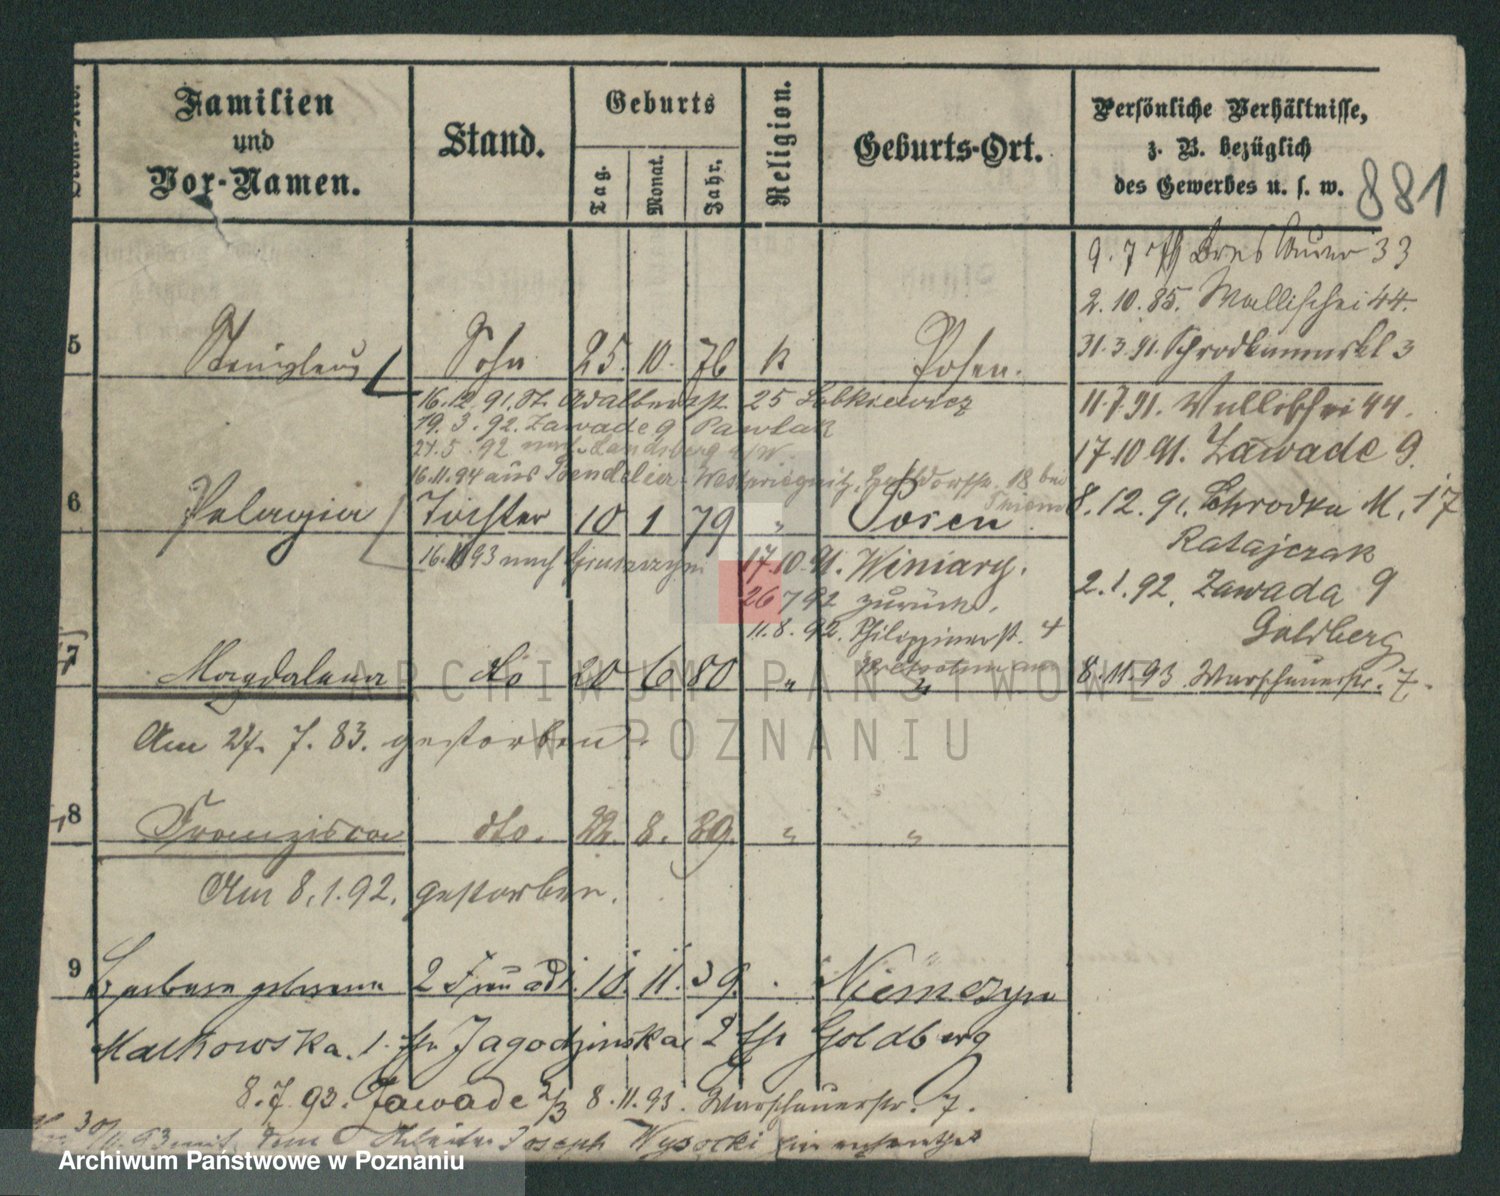 Familien
und
Vor-Namen.
Stand.
Geburts
Tag.
Monat.
Jahr.
Religion.
Geburts-Ort.
Persönliche Verhältnisse,
z. B. bezüglich
des Gewerbes u. s. w.
881
9. 7 33
2. 10. 85. Wallischei 44.
31. 3. 91. Schrodkamarkt 3
5 Stanislaus Sohn 25. 10. 76 k Posen.
16. 12. 91. St. Adalbertstr. 25 Labkiewicz
11. 7. 91. Wallischei 44.
19. 3. 92. Zawade 9 Pawlak
17. 10. 91. Zawade 9.
92 nach Landsberg a/W.
16. 11. 94 aus Westpriegnitz, 18 bei
Thiem
6 Pelagia Tochter 10 1 79 " Posen.
8. 12. 91. Schrodka M. 17
Ratajczak
93 nach 17. 10. 91. Winiary.
26 7 92 zurück.
2. 1. 92. Zawada 9
Goldberg
11. 8. 92. Philippinerst. 4
7 Magdalena do 20 6 80 " "
8. 11. 93. Warschauerstr. 7.
Am 27. 7. 83. gestorben.
8 Franziska dto. 22. 8. 89. " "
Am 8. 1. 92. gestorben.
9 Barbara geborene 2 Frau ad 1. 10. 11. 39. Niemczyn
Malkowska. 1. fr. Jagodzinska, 2 fr. Goldberg
8. 7. 93. Zawade 2/3 8. 11. 93. Warschauerstr. 7.
93 mit dem Arbeiter Joseph Wysocki
ARCHIWUM PAŃSTWOWE
W POZNANIU
Archiwum Państwowe w Poznaniu